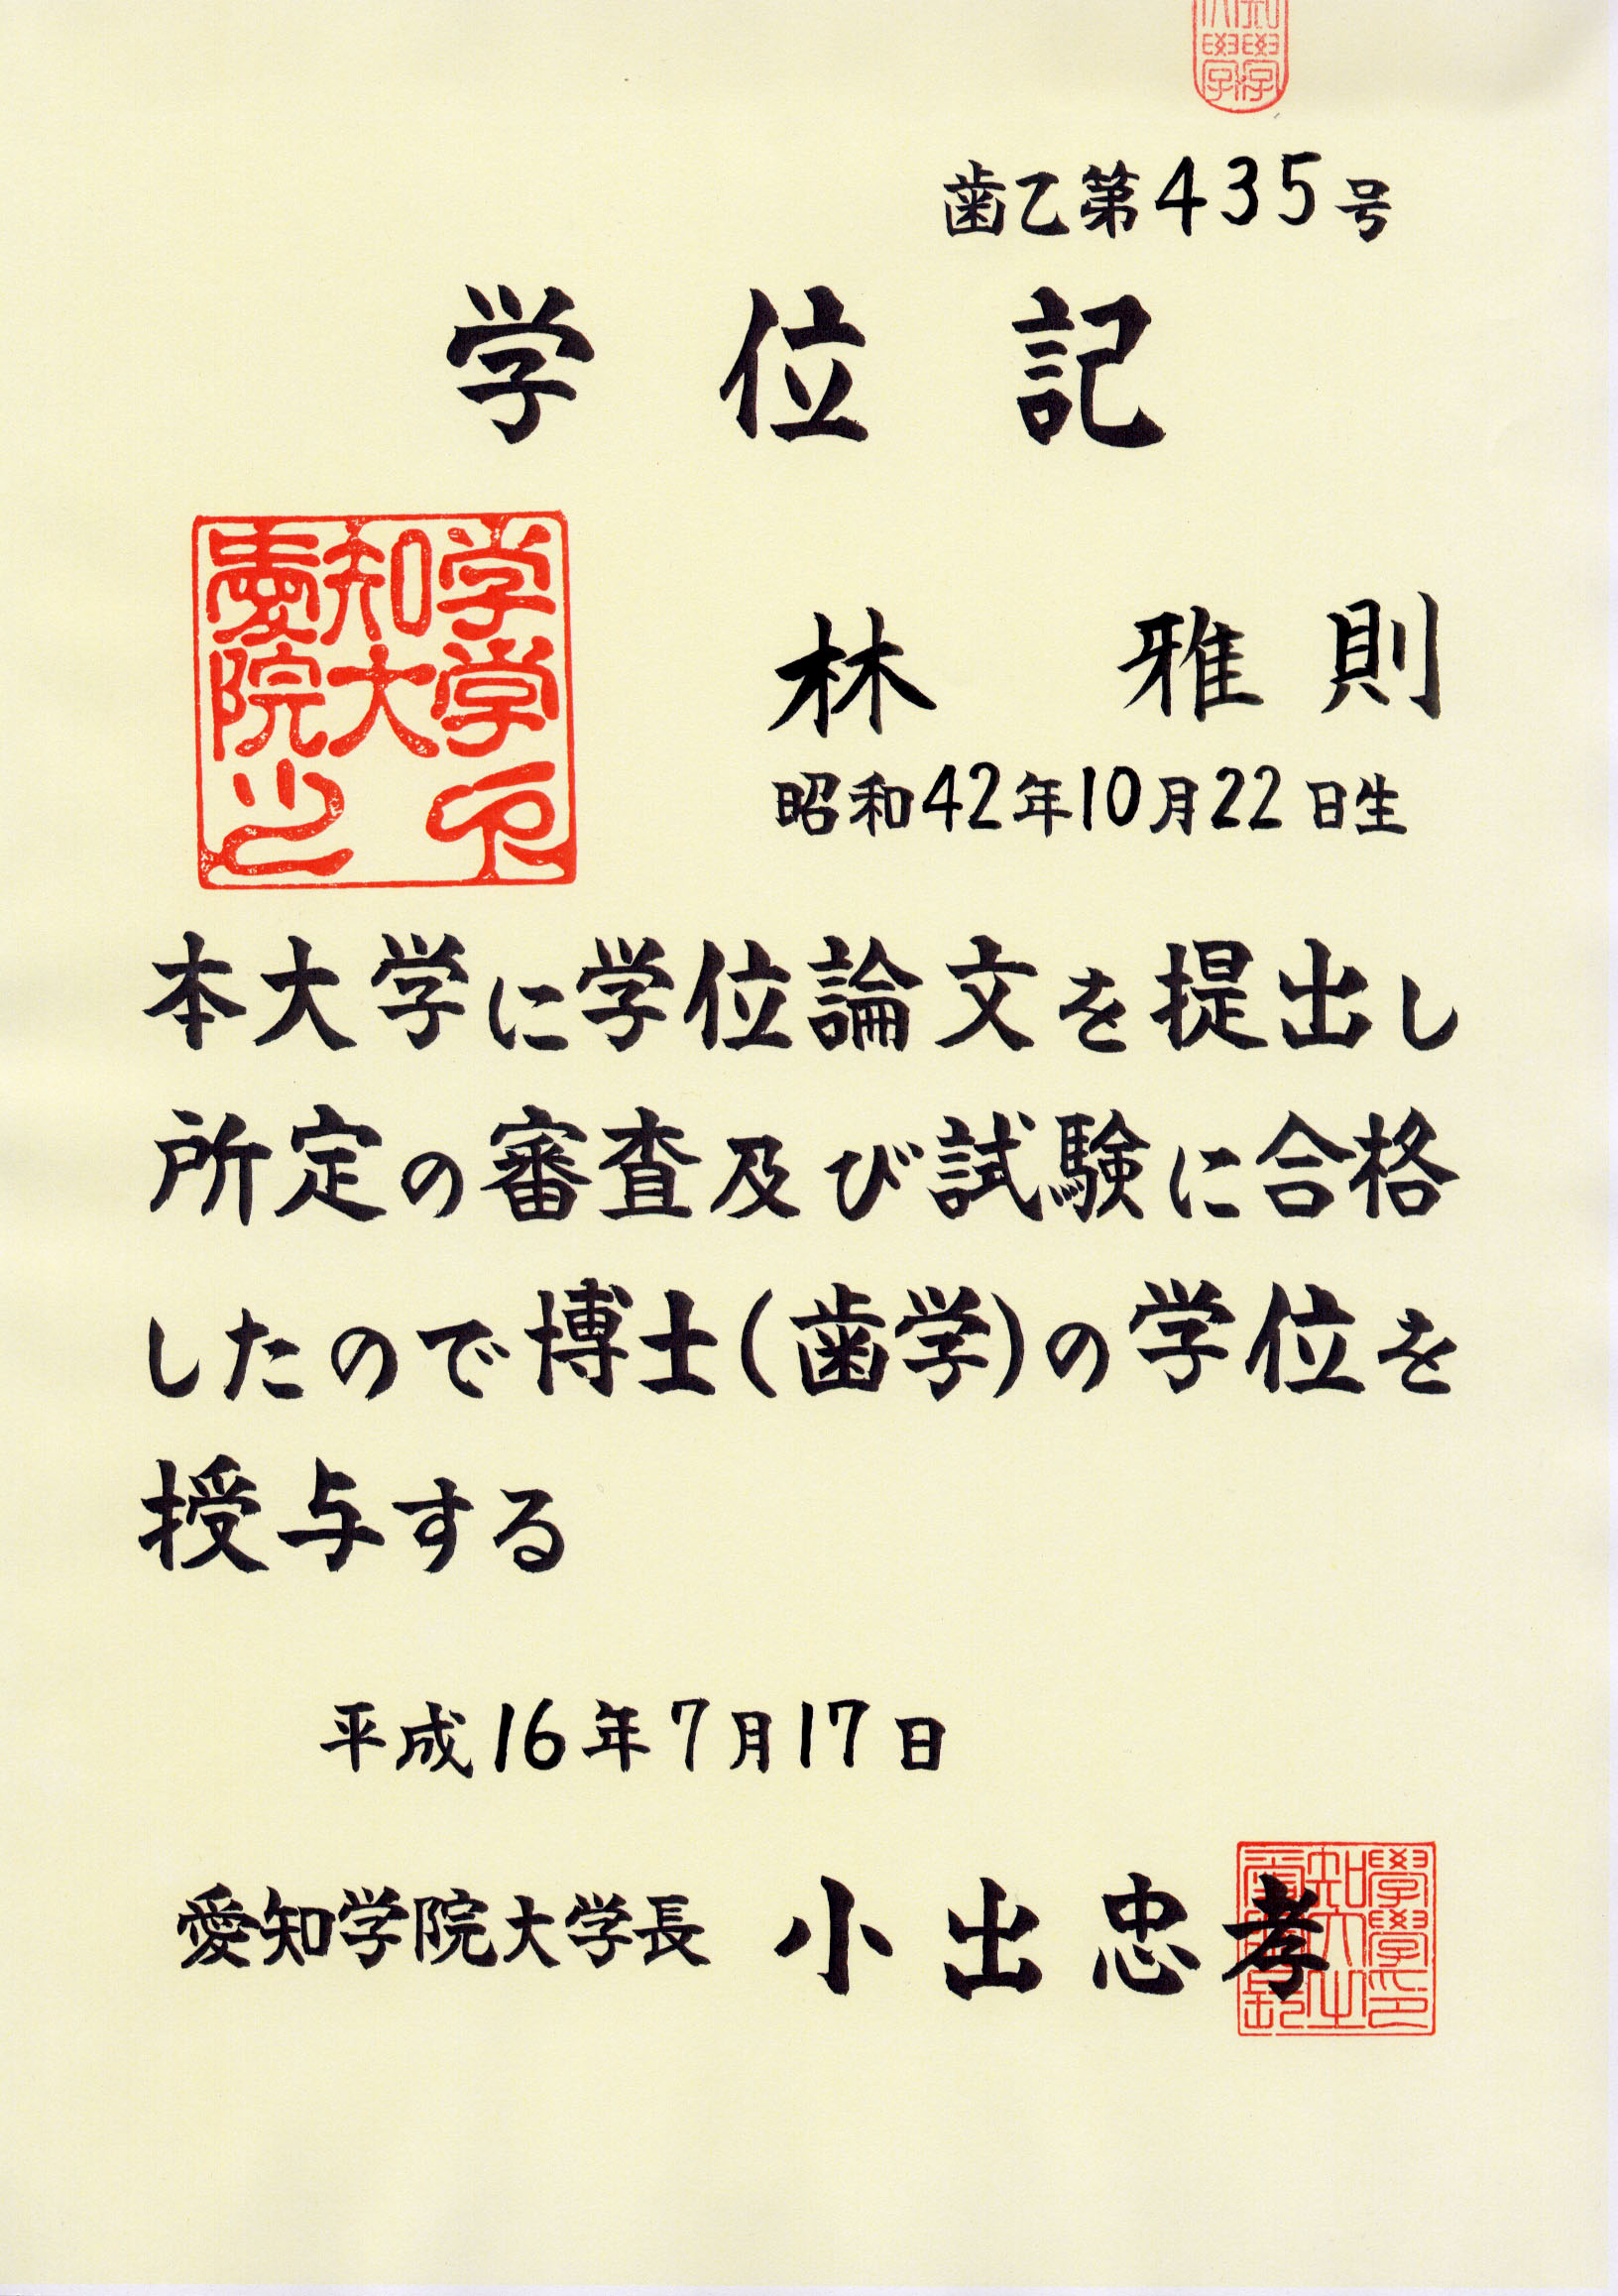 歯乙第435号
学位記
愛知学
院大学
之印
林 雅則
昭和42年10月22日生
本大学に学位論文を提出し
所定の審査及び試験に合格
したので博士(歯学)の学位を
授与する
平成16年7月17日
愛知学院大学長 小出忠孝